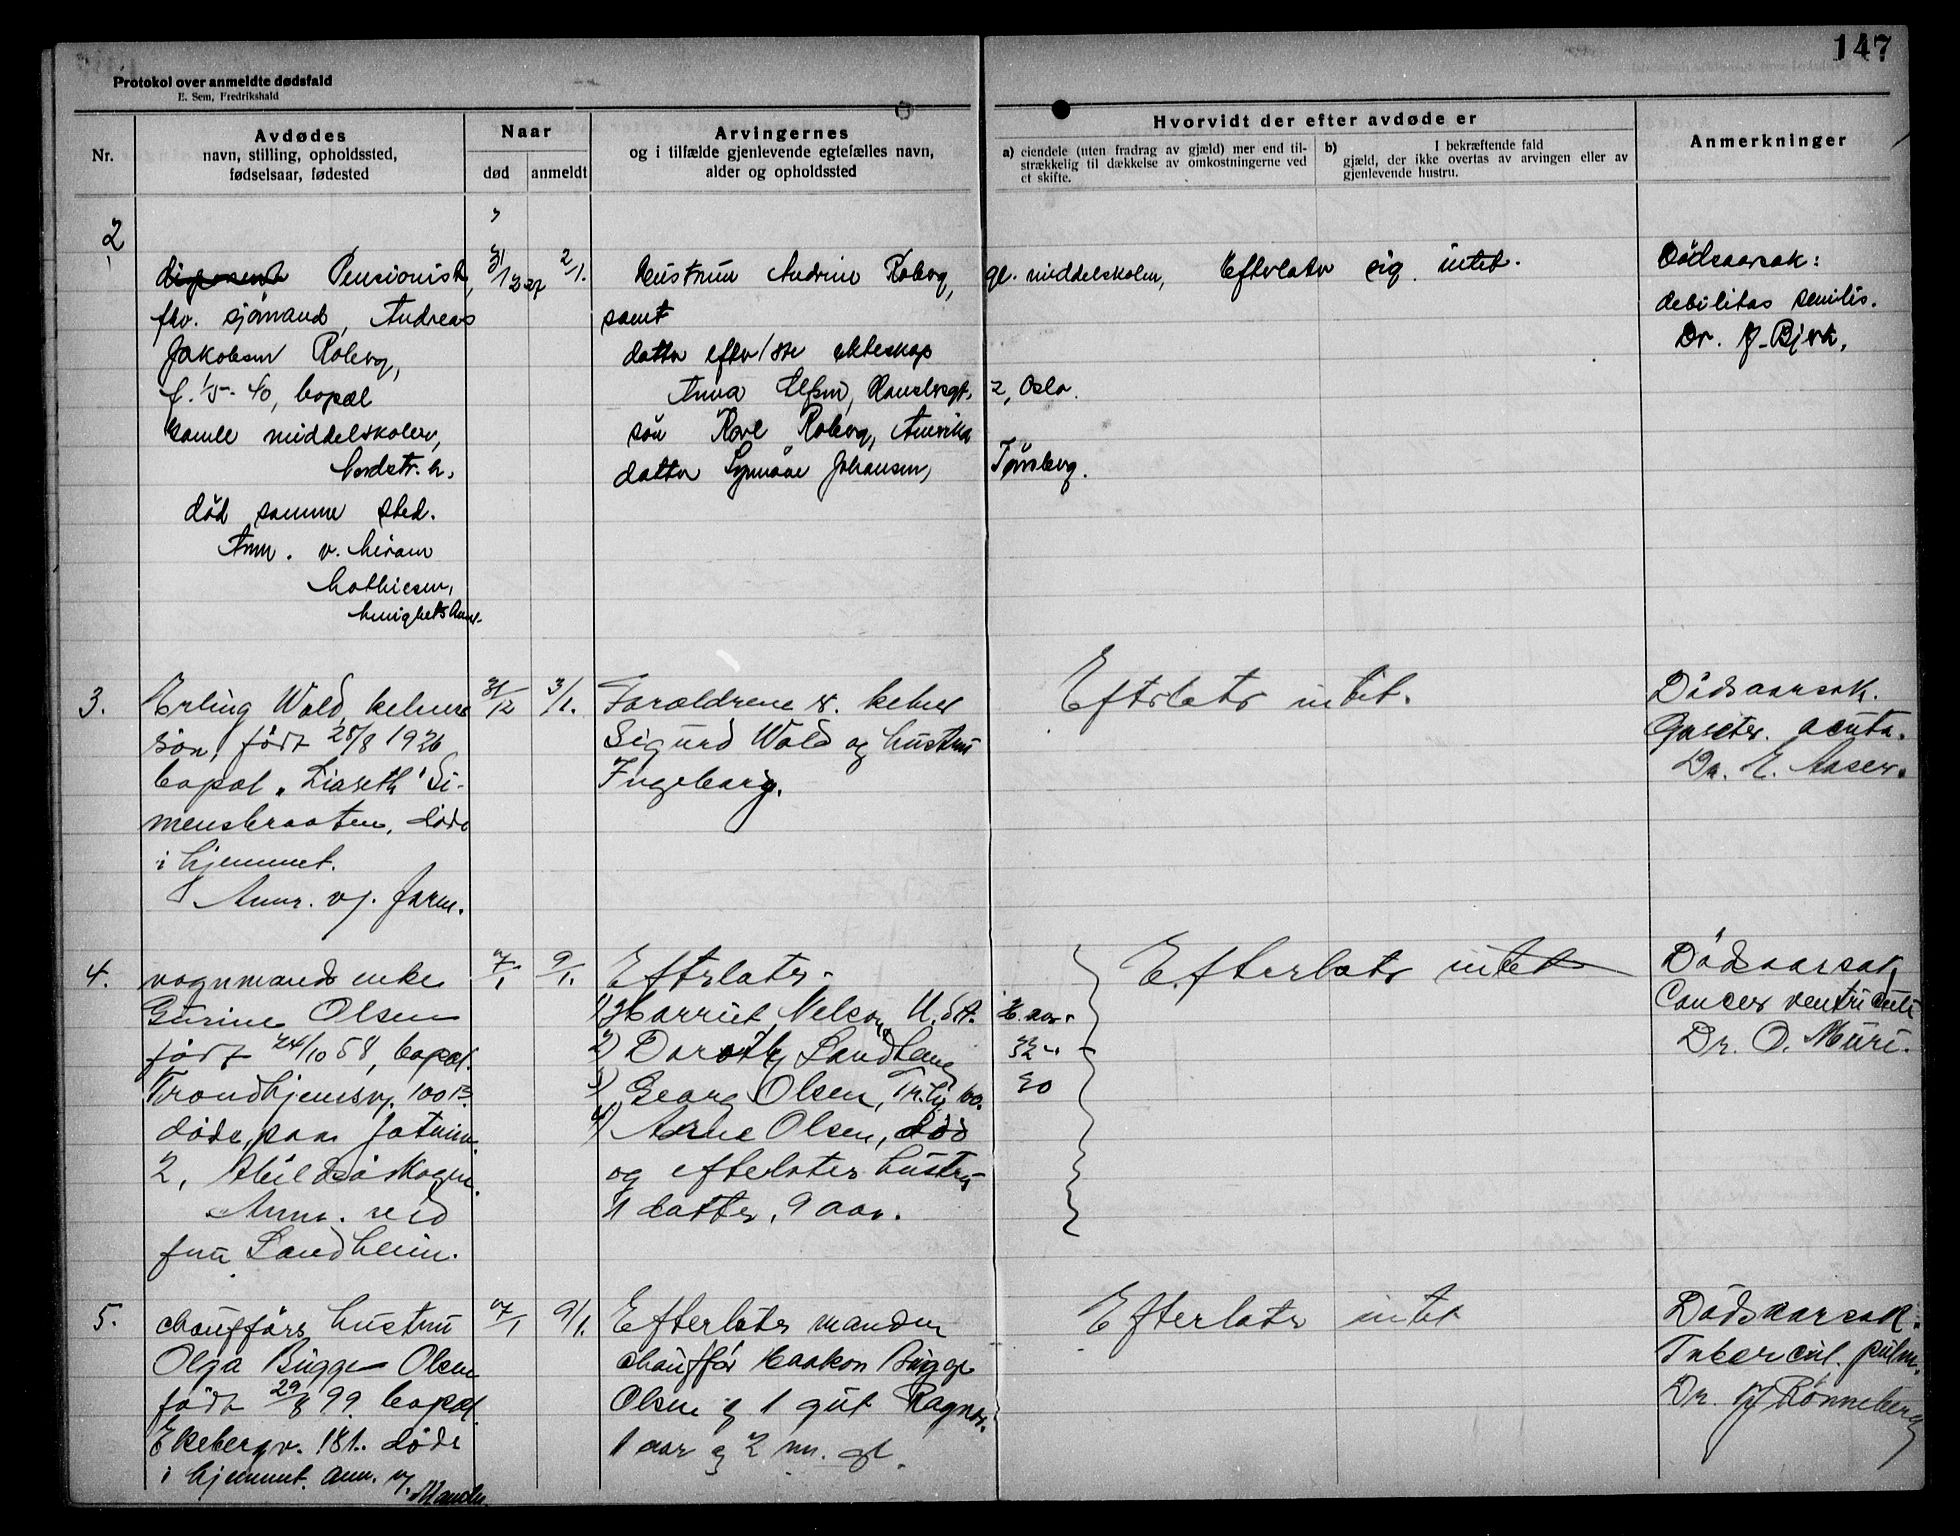 147
Protokol over anmeldte dødsfald
E. Sem, Fredrikshald
Nr.
Avdødes
navn, stilling, opholdssted,
fødselsaar, fødested
Naar
død
anmeldt
Arvingernes
og i tilfælde gjenlevende egtefælles navn,
alder og opholdssted
Hvorvidt der efter avdøde er
a) eiendele (uten fradrag av gjæld) mer end til-
strækkelig til dækkelse av omkostningerne ved
et skifte.
b) I bekræftende fald
gjæld, der ikke overtas av arvingen eller av
gjenlevende hustru.
Anmerkninger
2
Pensionist,
fhv. sjømand, Andreas
Jakobsen Roberg,
f. 1/5-40, bopæl
Gamle middelskolen,
Nordstr. h,
død samme sted.
Anm. v. Miriam
Mathiesen,
31/12 27
2/1.
Hustrun Andrine Roberg, gl. middelskolen,
samt
datter efter 1ste ekteskap
Anna Elfsen, 2, Oslo.
søn Karl Roberg, Amerika
datter Synnøve Johansen, Tønsberg.
Efterlater sig intet.
Dødsaarsak:
debilitas senilis.
Dr. J. Bjerk.
3.
Erling Wold, kelners
søn, født 25/8 1926
bopæl "Liaseth" Si-
mensbraaten, døde
i hjemmet.
Anm. v. farm.
31/12
3/1.
Forældrene er kelner
Sigurd Wold og hustru
Ingeborg.
Efterlater intet.
Dødsaarsak.
Gastr. acuta.
Dr. E. Aaser.
4.
vognmands enke
Gurine Olsen
født 24/10 58, bopæl
Trondhjemsv. 100 B.
døde paa Jotunv.
2, Abildsøskogen.
Anm. ved
fru Sandheim.
7/1
9/1.
Efterlater
1) Harriet Nelson U.S.A.
2) Dorothy Sandheim 32 "
3) Georg Olsen, Tr.hj. 100. 30
4) Arne Olsen, død
og efterlater hustru
1 datter, 9 aar.
Efterlater intet
Dødsaarsak
Cancer ventriculi
Dr. O. Müri.
5.
chaufførs hustru
Olga Bugge Olsen
født 29/8 99. bopæl
Ekebergv. 181. døde
i hjemmet. Anm. v.
Manden.
7/1
9/1.
Efterlater manden
chauffør Haakon Bugge
Olsen og 1 gut Ragnar.
1 aar og 2 mn. gl.
Efterlater intet
Dødsaarsak:
Tubercul. pulm.
Dr. Rønneberg